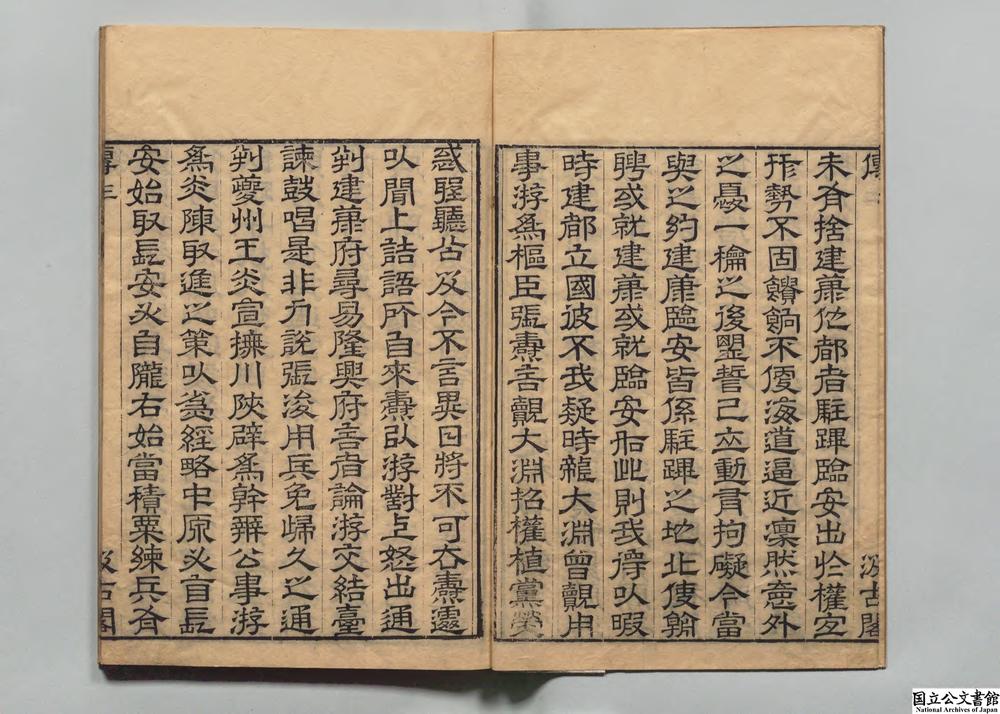 傳
汲古閣
未有捨建康他都者駐蹕臨安出於權宜
形勢不固饋餉不便海道逼近凜然意外
之憂一之後盟誓已立動有拘礙今當
與之約建康臨安皆係駐蹕之地北使朝
聘或就建康或就臨安如此則我得以暇
時建都立國彼不我疑時龍大淵曾覿用
事游爲樞臣張燾言覿大淵招權植黨熒
惑聖聽公及今不言異日將不可去燾遽
以聞上詰語所自來燾以游對上怒出通
判建康府尋易隆興府言者論游交結臺
諫鼓唱是非力說張浚用兵免歸久之通
判夔州王炎宣撫川陝辟爲幹辦公事游
爲炎陳取進之策以爲經略中原必自長
安始取長安必自隴右始當積粟練兵有
傳三
汲古閣
国立公文書館
National Archives of Japan